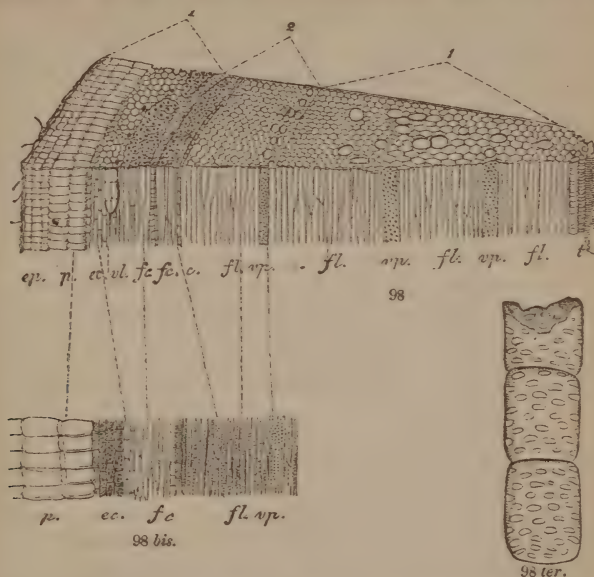 1 2 1
ep. p. ec. vl. fc. fc. c. fl. vp. . fl. vp. fl. vp. fl.
98
p. ec. fc fl. vp.
98 bis.
98 ter.